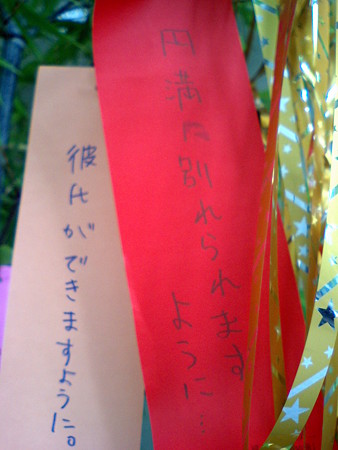 円満に別れられます
ように…
彼氏ができますように。